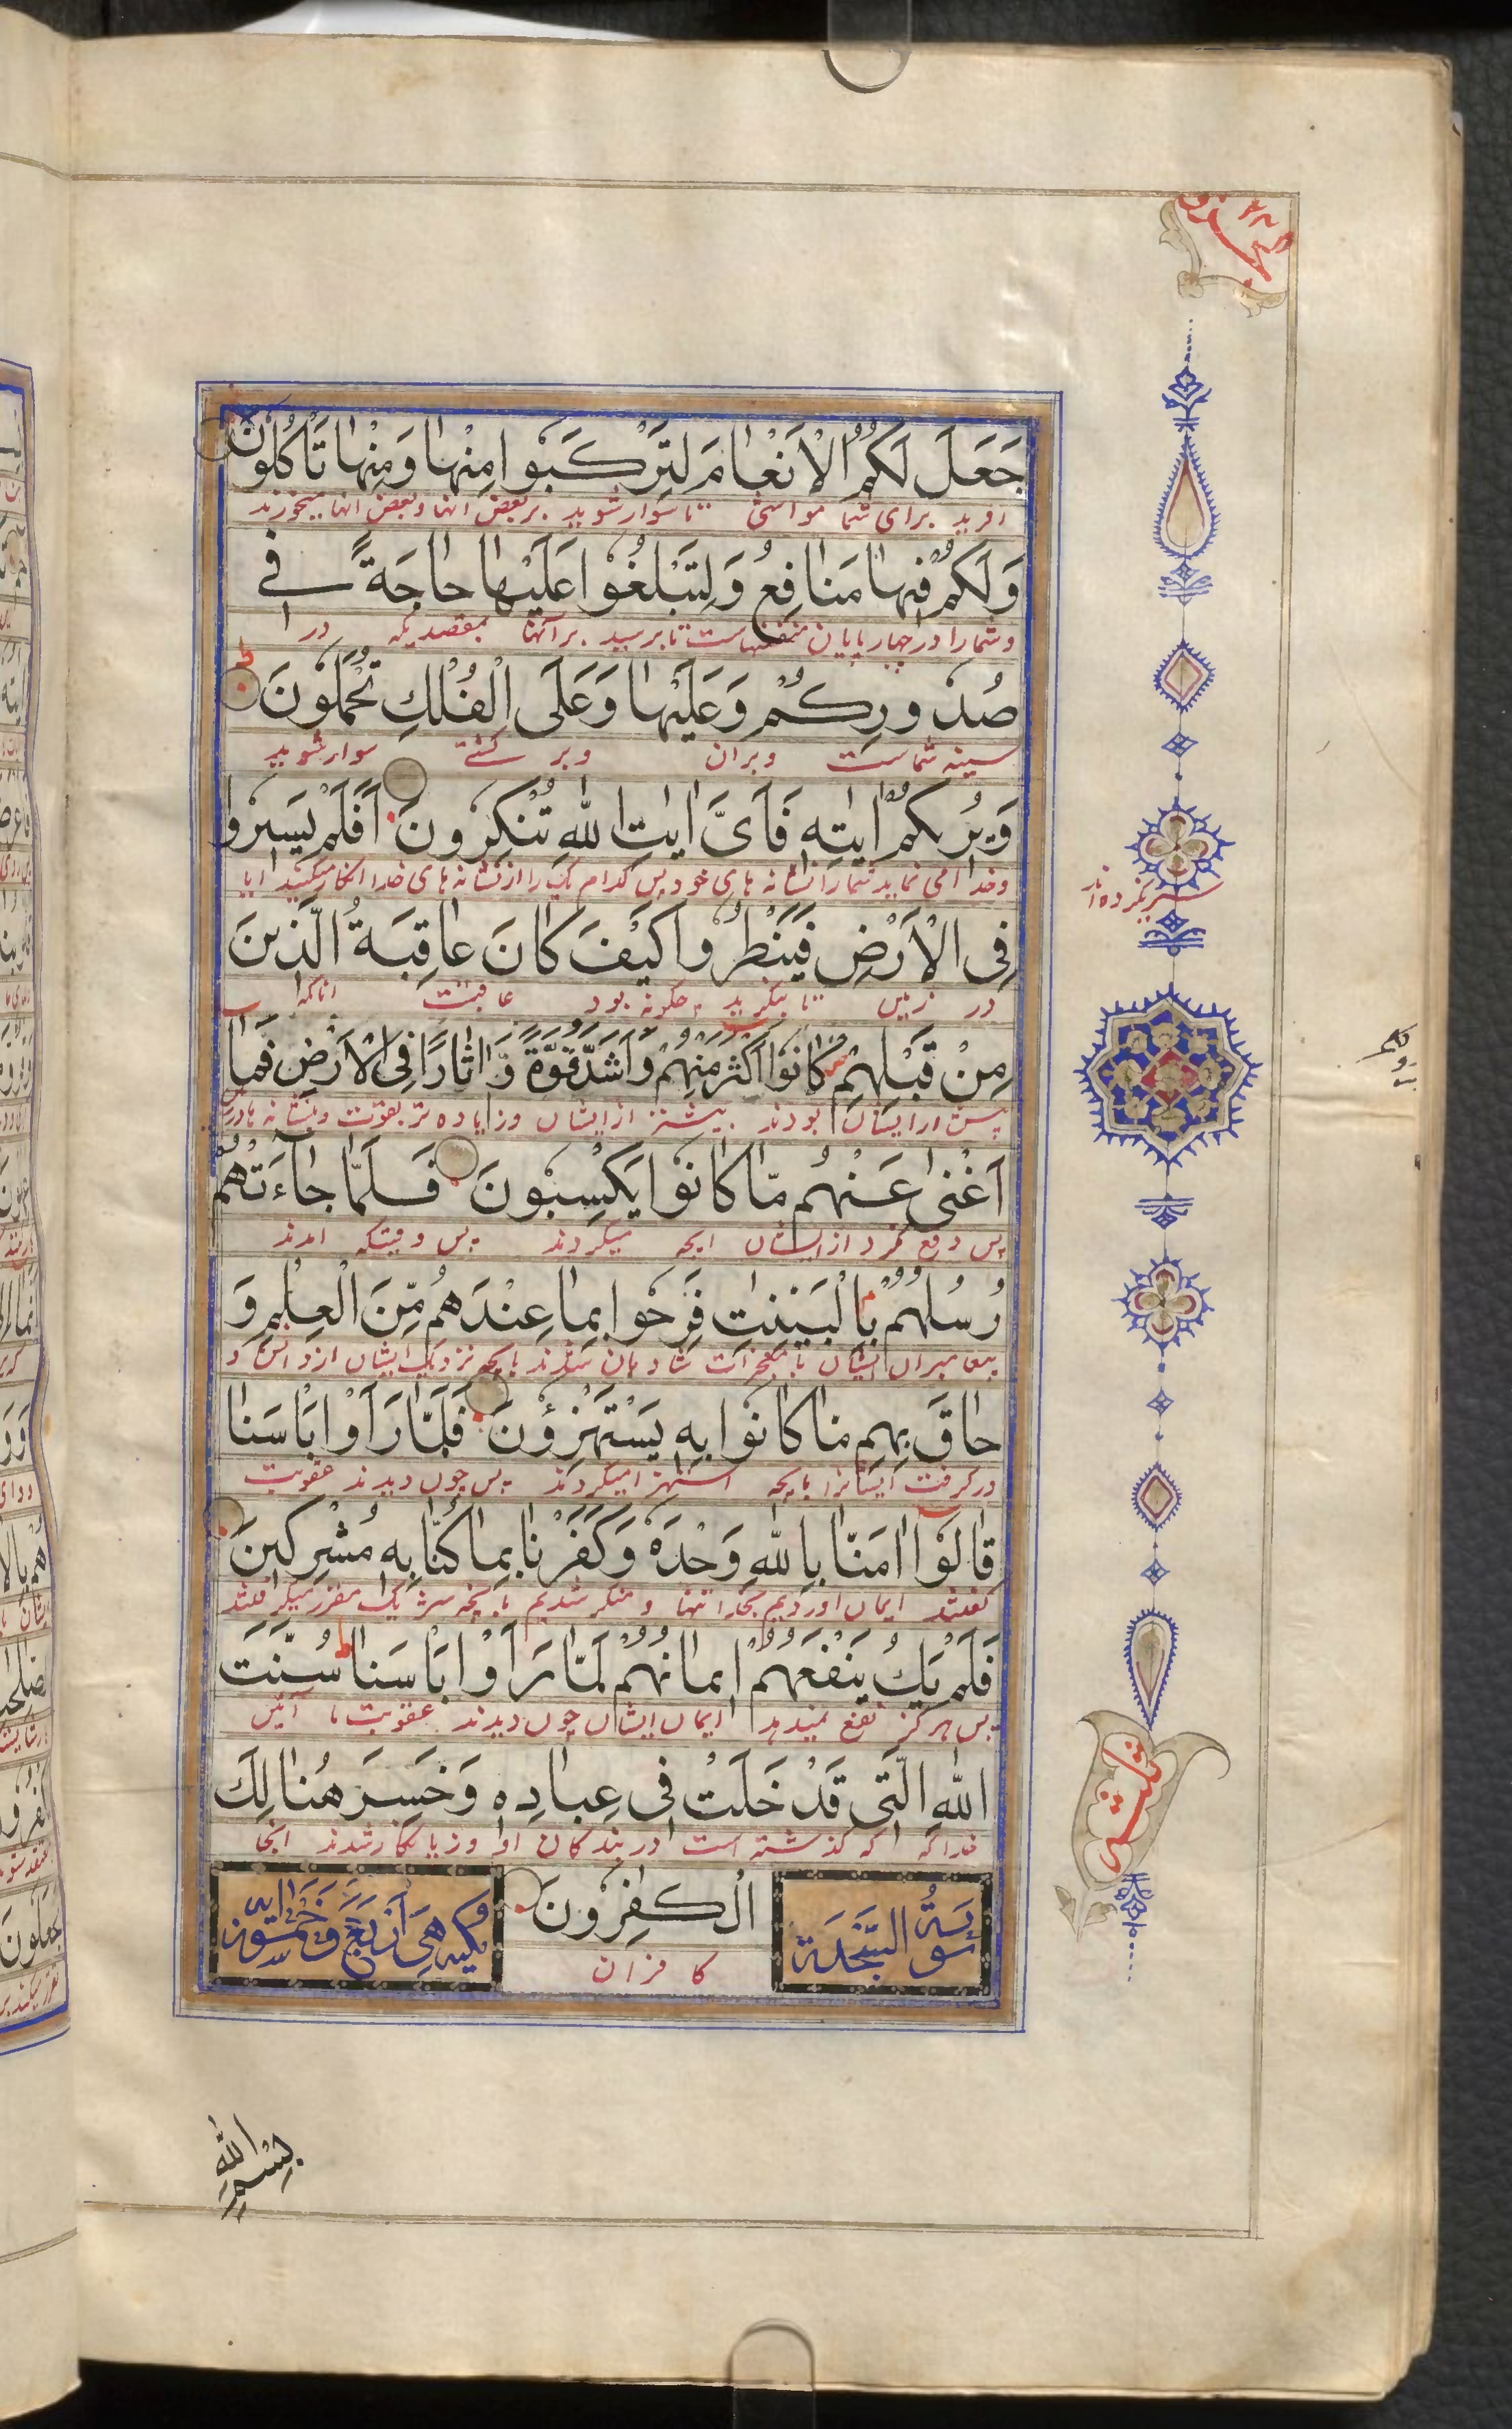 جَعَلَ لَكُمُ الْاَنْعَامَ لِتَرْكَبُوا مِنْهَا وَمِنْهَا تَأْكُلُونَ
افرید برای شما مواشی تا سوار شوید بر بعض انها و بعض انها میخورند
وَلَكُمْ فِيهَا مَنَافِعُ وَلِتَبْلُغُوا عَلَيْهَا حَاجَةً فِي
و شما را در چهار پایان منفعتهاست تا برسید بر آنها بمقصدیکه در
صُدُورِكُمْ وَعَلَيْهَا وَعَلَى الْفُلْكِ تُحْمَلُونَ
سینه شماست و بران و بر کشتے سوار شوید
وَيُرِيكُمْ اٰيٰتِهٖ فَاَىَّ اٰيٰتِ اللّٰهِ تُنْكِرُونَ اَفَلَمْ يَسِيرُوا
و خدا می نماید شما را نشانه های خود پس کدام یک را از نشانه های خدا انکار میکنید ایا
سیر نکرده اند
فِى الْاَرْضِ فَيَنْظُرُوا كَيْفَ كَانَ عَاقِبَةُ الَّذِينَ
در زمین تا بنگرید چگونه بود عاقبت انانکه
مِنْ قَبْلِهِمْ كَانُوا اَكْثَرَ مِنْهُمْ وَاَشَدَّ قُوَّةً وَّاٰثَارًا فِى الْاَرْضِ فَمَا
پیش از ایشان بودند بیشتر از ایشان و زیاده تر بقوت و نشانه ها در زمین
اَغْنٰى عَنْهُمْ مَّا كَانُوا يَكْسِبُونَ فَلَمَّا جَاءَتْهُمْ
پس دفع نکرد از ایشان انچه میکردند پس وقتیکه امدند
رُسُلُهُمْ بِالْبَيِّنٰتِ فَرِحُوا بِمَا عِنْدَهُمْ مِّنَ الْعِلْمِ وَ
پیغامبران ایشان با معجزات شادمان شدند بانچه نزدیک ایشان از دانش و
حَاقَ بِهِمْ مَا كَانُوا بِهٖ يَسْتَهْزِؤُنَ فَلَمَّا رَاَوْا بَاْسَنَا
درگرفت ایشانرا بانچه استهزا میکردند پس چون دیدند عقوبت
قَالُوْا اٰمَنَّا بِاللّٰهِ وَحْدَهٗ وَكَفَرْنَا بِمَا كُنَّا بِهٖ مُشْرِكِينَ
گفتند ایمان اوردیم بخدا تنها و منکر شدیم بانچه شریک مقرر میکردیم
فَلَمْ يَكُ يَنْفَعُهُمْ اِيمَانُهُمْ لَمَّا رَاَوْا بَاْسَنَا سُنَّتَ
پس هرگز نفع نمیدهد ایمان ایشان چون دیدند عقوبت ما آئین
اللّٰهِ الَّتِى قَدْ خَلَتْ فِى عِبَادِهٖ وَخَسِرَ هُنَالِكَ
خدا که گذشته است در بندگان او و زیانکار شدند انجا
سورة السجدة
الْكٰفِرُونَ
مكيه هى اربع وخمسون اية
کافران
ثلث
بِسْمِ اللّٰهِ